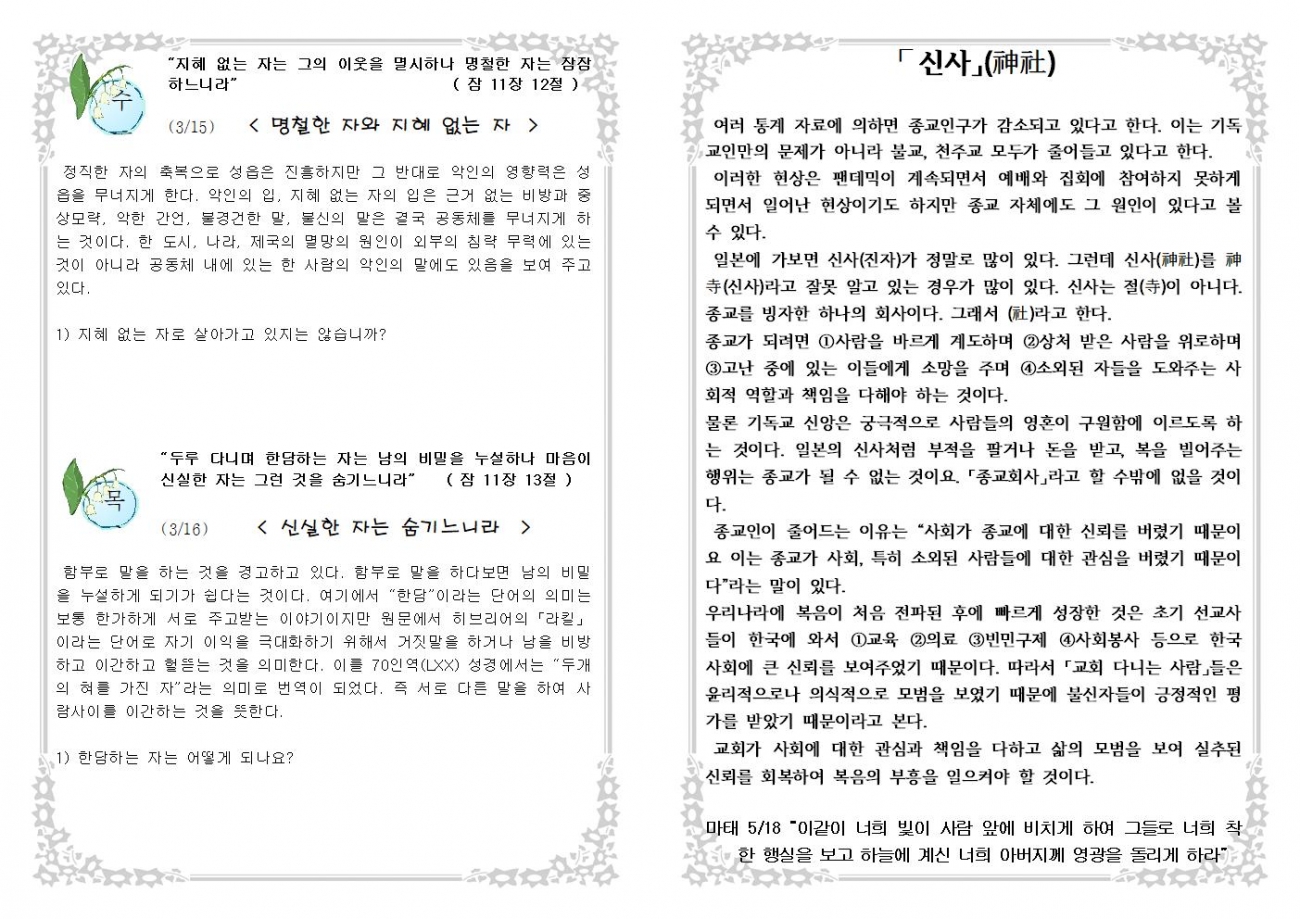 “지혜 없는 자는 그의 이웃을 멸시하나 명철한 자는 잠잠
하느니라” ( 잠 11장 12절 )
수
(3/15) < 명철한 자와 지혜 없는 자 >
정직한 자의 축복으로 성읍은 진흥하지만 그 반대로 악인의 영향력은 성
읍을 무너지게 한다. 악인의 입, 지혜 없는 자의 입은 근거 없는 비방과 중
상모략, 악한 간언, 불경건한 말, 불신의 말은 결국 공동체를 무너지게 하
는 것이다. 한 도시, 나라, 제국의 멸망의 원인이 외부의 침략 무력에 있는
것이 아니라 공동체 내에 있는 한 사람의 악인의 말에도 있음을 보여 주고
있다.
1) 지혜 없는 자로 살아가고 있지는 않습니까?
“두루 다니며 한담하는 자는 남의 비밀을 누설하나 마음이
신실한 자는 그런 것을 숨기느니라” ( 잠 11장 13절 )
목
(3/16) < 신실한 자는 숨기느니라 >
함부로 말을 하는 것을 경고하고 있다. 함부로 말을 하다보면 남의 비밀
을 누설하게 되기가 쉽다는 것이다. 여기에서 “한담”이라는 단어의 의미는
보통 한가하게 서로 주고받는 이야기이지만 원문에서 히브리어의 「라킬」
이라는 단어로 자기 이익을 극대화하기 위해서 거짓말을 하거나 남을 비방
하고 이간하고 헐뜯는 것을 의미한다. 이를 70인역(LXX) 성경에서는 “두개
의 혀를 가진 자”라는 의미로 번역이 되었다. 즉 서로 다른 말을 하여 사
람사이를 이간하는 것을 뜻한다.
1) 한담하는 자는 어떻게 되나요?
「신사」(神社)
여러 통계 자료에 의하면 종교인구가 감소되고 있다고 한다. 이는 기독
교인만의 문제가 아니라 불교, 천주교 모두가 줄어들고 있다고 한다.
이러한 현상은 팬데믹이 계속되면서 예배와 집회에 참여하지 못하게
되면서 일어난 현상이기도 하지만 종교 자체에도 그 원인이 있다고 볼
수 있다.
일본에 가보면 신사(진자)가 정말로 많이 있다. 그런데 신사(神社)를 神
寺(신사)라고 잘못 알고 있는 경우가 많이 있다. 신사는 절(寺)이 아니다.
종교를 빙자한 하나의 회사이다. 그래서 (社)라고 한다.
종교가 되려면 ①사람을 바르게 계도하며 ②상처 받은 사람을 위로하며
③고난 중에 있는 이들에게 소망을 주며 ④소외된 자들을 도와주는 사
회적 역할과 책임을 다해야 하는 것이다.
물론 기독교 신앙은 궁극적으로 사람들의 영혼이 구원함에 이르도록 하
는 것이다. 일본의 신사처럼 부적을 팔거나 돈을 받고, 복을 빌어주는
행위는 종교가 될 수 없는 것이요. 「종교회사」라고 할 수밖에 없을 것이
다.
종교인이 줄어드는 이유는 “사회가 종교에 대한 신뢰를 버렸기 때문이
요 이는 종교가 사회, 특히 소외된 사람들에 대한 관심을 버렸기 때문이
다”라는 말이 있다.
우리나라에 복음이 처음 전파된 후에 빠르게 성장한 것은 초기 선교사
들이 한국에 와서 ①교육 ②의료 ③빈민구제 ④사회봉사 등으로 한국
사회에 큰 신뢰를 보여주었기 때문이다. 따라서 「교회 다니는 사람」들은
윤리적으로나 의식적으로 모범을 보였기 때문에 불신자들이 긍정적인 평
가를 받았기 때문이라고 본다.
교회가 사회에 대한 관심과 책임을 다하고 삶의 모범을 보여 실추된
신뢰를 회복하여 복음의 부흥을 일으켜야 할 것이다.
마태 5/18 "이같이 너희 빛이 사람 앞에 비치게 하여 그들로 너희 착
한 행실을 보고 하늘에 계신 너희 아버지께 영광을 돌리게 하라"